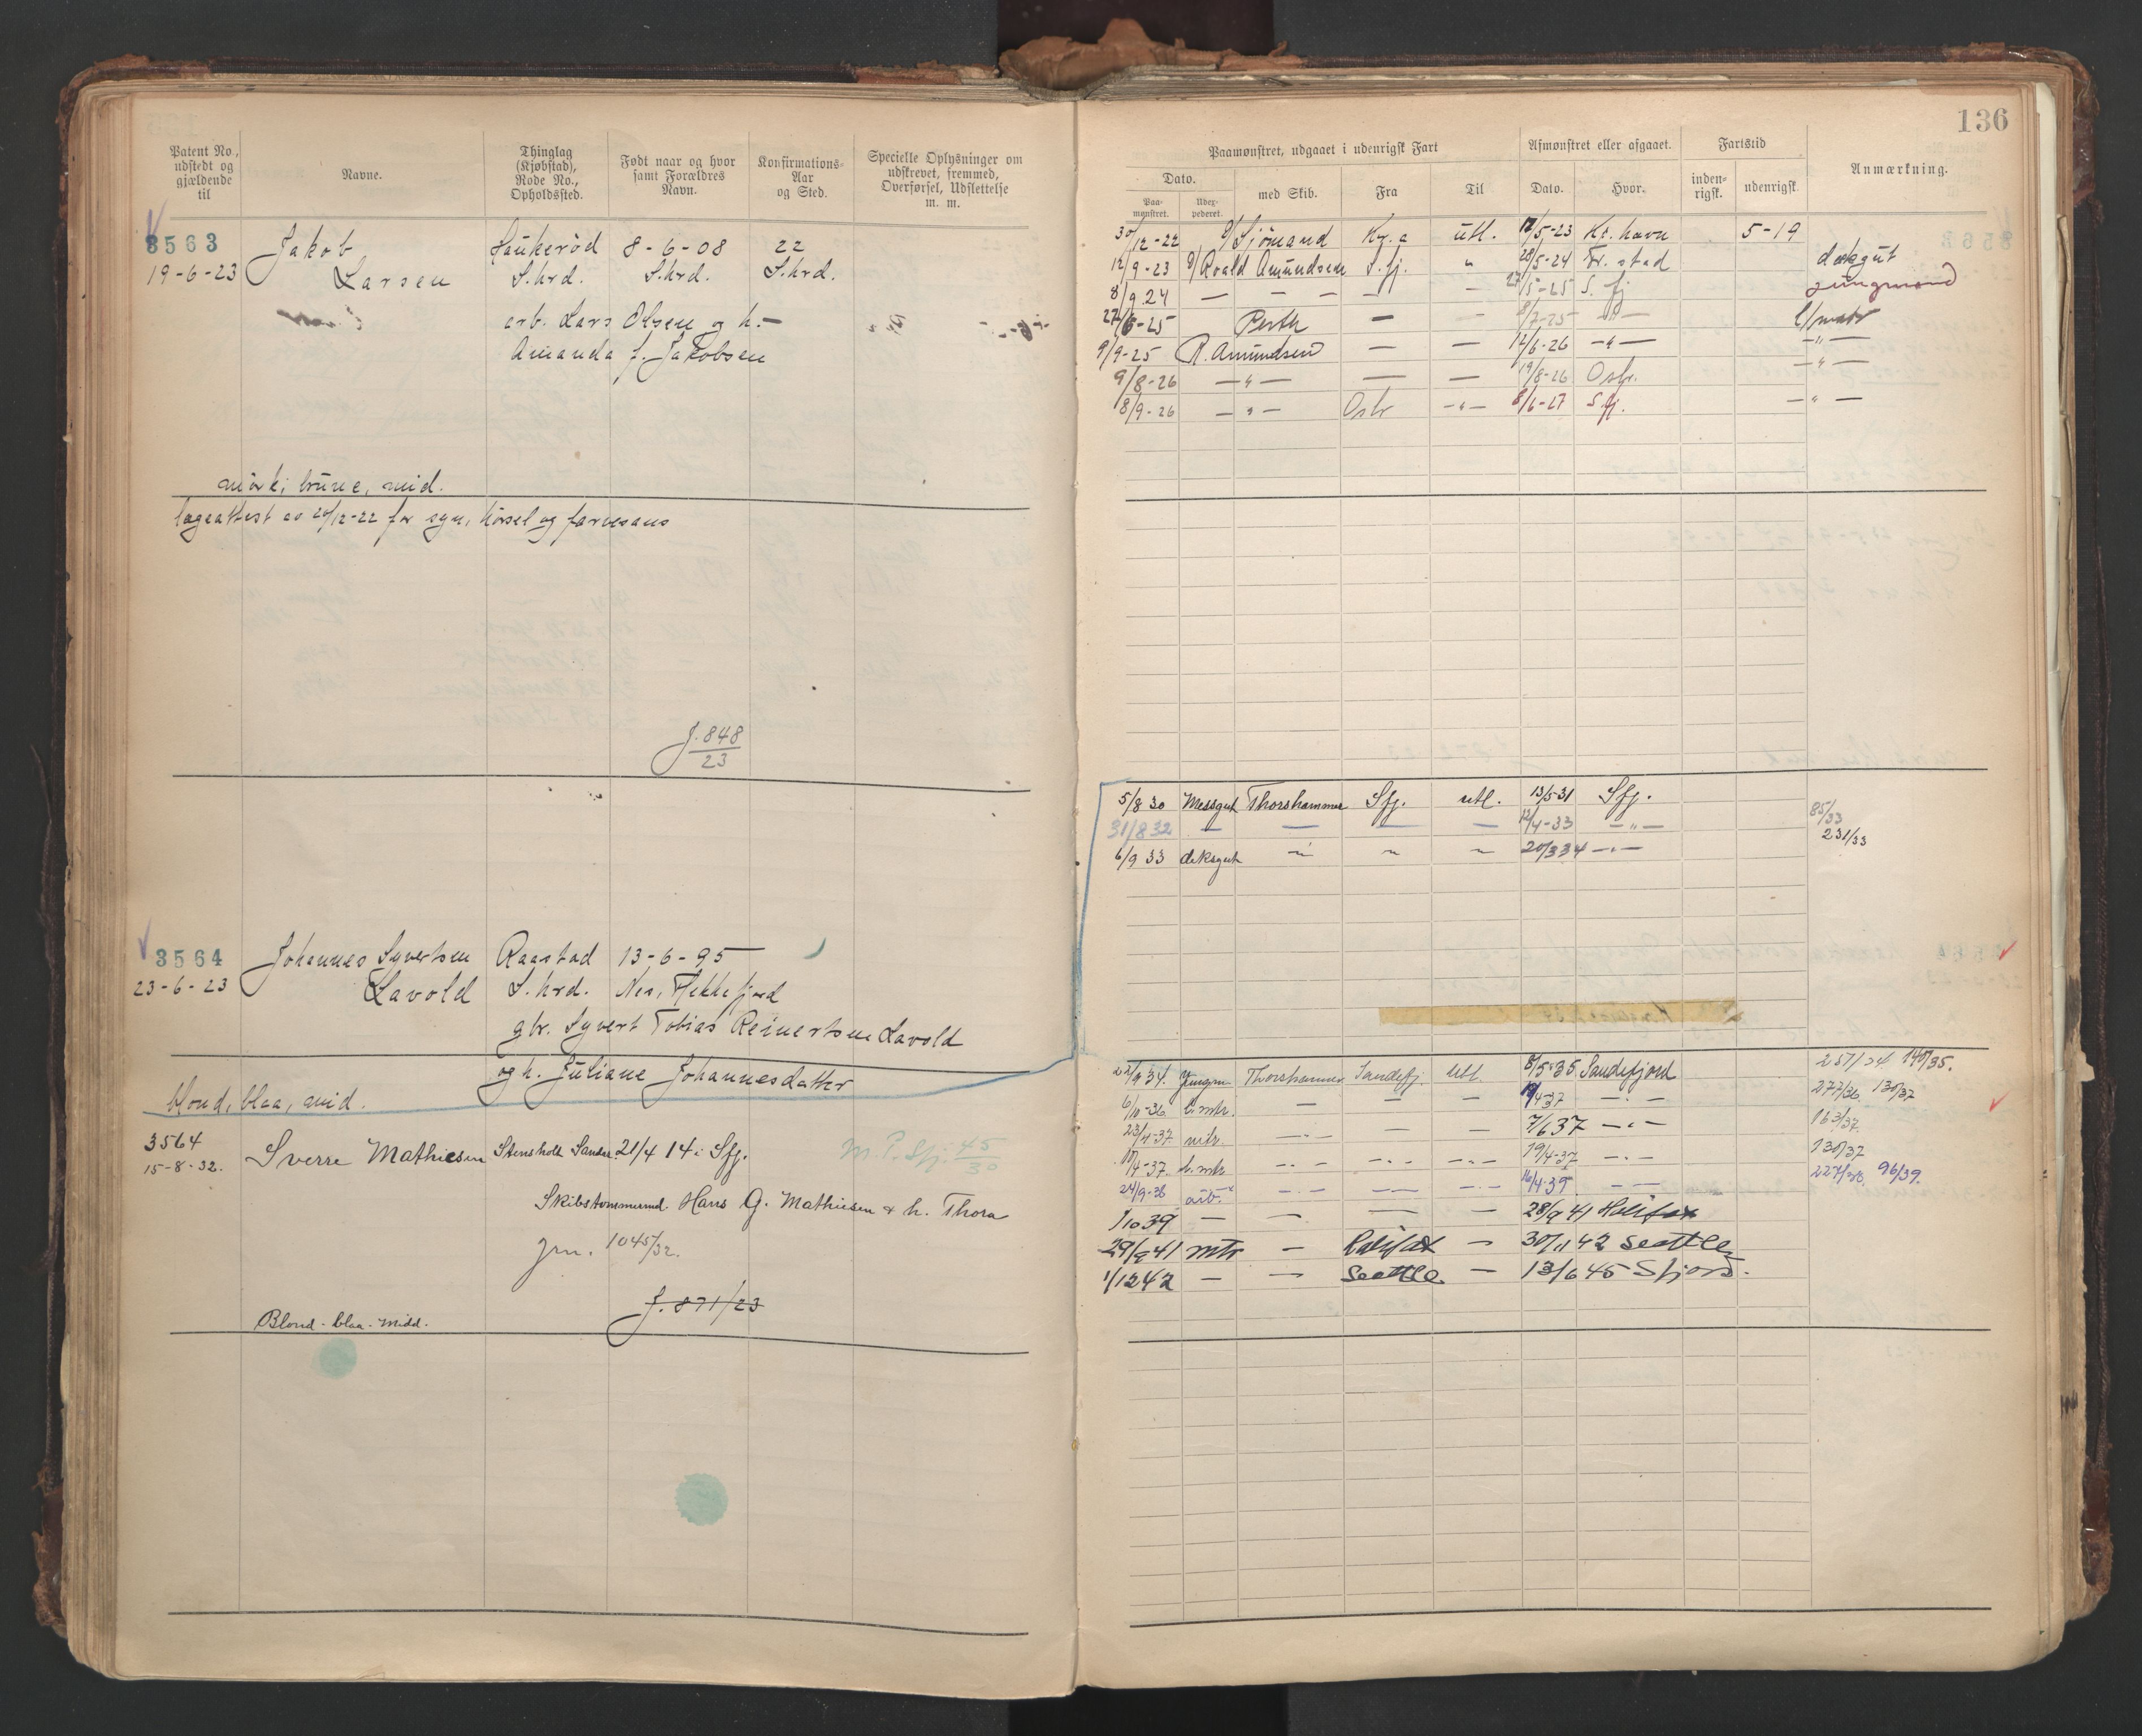 136
Patent No., udstedt og gjældende til
Navne.
Thinglag (Kjøbstad), Rode No., Opholdssted.
Født naar og hvor samt Forældres Navn.
Konfirmations-Aar og Sted.
Specielle Oplysninger om udskrevet, fremmed, Overførsel, Udslettelse m. m.
Paamønstret, udgaaet i udenrigsk Fart
Afmønstret eller afgaaet.
Fartstid
Anmærkning.
Dato.
med Skib.
Fra
Til
Dato.
Hvor.
inden-rigsk.
udenrigsk.
Paa-mønstret.
3563 Jakob Haukerød 8-6-08 22
19-6-23 Larsen S.hrd. S.hrd. S.hrd.
arb. Lars Olsen og h.
Amanda f. Jakobsen
mörk, brune, mid.
lægeattest av 20/12-22 for syn, hörsel og farvesans
J. 848/23
3564 Johannes Syvertsen Raastad 13-6-95
23-6-23 Lavold S.hrd. Nes, Flekkefjord
gbr. Syvert Tobias Reinertsen Lavold
og h. Juliane Johannesdatter
blond, blaa, mid.
3564 Sverre Mathiesen Stensholt Sandar. 21/4 14 i Sfj. M.P. Sfj. 45/30
15-8-32.
Skibstømmermd. Hans G. Mathiesen & h. Thora
Jrn. 1045/32.
J. 871/23
Blond - blaa - midd.
30/12-22 Sjömand Kr.a utl. 5-23 Kr.havn 5-19
12/9-23 Roald Amundsen S.fj. " 5-24 Fr.stad deksgut
8/9 24 — — — — — 5-25 S.fj jungmand
5-25 Perth — — 8/7-25 — " — l/matr
9/9-25 R. Amundsen — — 12/6-26 — " — — " —
9/8-26 — " — — — 19/8-26 Oslo. — " —
8/9-26 — " — Oslo — " — 8/6-27 S.fj. — " —
5/8 30 Messgut Thorshammer Sfj. utl. 13/5-31 Sfj.
31/8 32 — — — — 12/4-33 — " — 85/33
6/9 33 deksgut — " — " " 20/3 34 — " — 231/33
9 34. Jungm Thorshammer Sandefj. utl. 8/5-35 Sandefjord 257/34 140/35.
6/10-36 l.mtr. — — — 4-37 — " — 277/36. 130/37
23/4-37 mtr. — " — — — 7/6 37 — " — 163/37.
4-37. l.mtr — " — — " — — " — 19/4-37 — " — 130/37
24/9-38 — " — — — — " — 16/4-39. — — 227/38. 96/39.
1/10 39 — — — — 28/9 41 Halifax
29/9 41 mtr — Halifax — 30/11 42 Seattle
1/12 42 — — Seattle — 13/6 45 Sfjord.